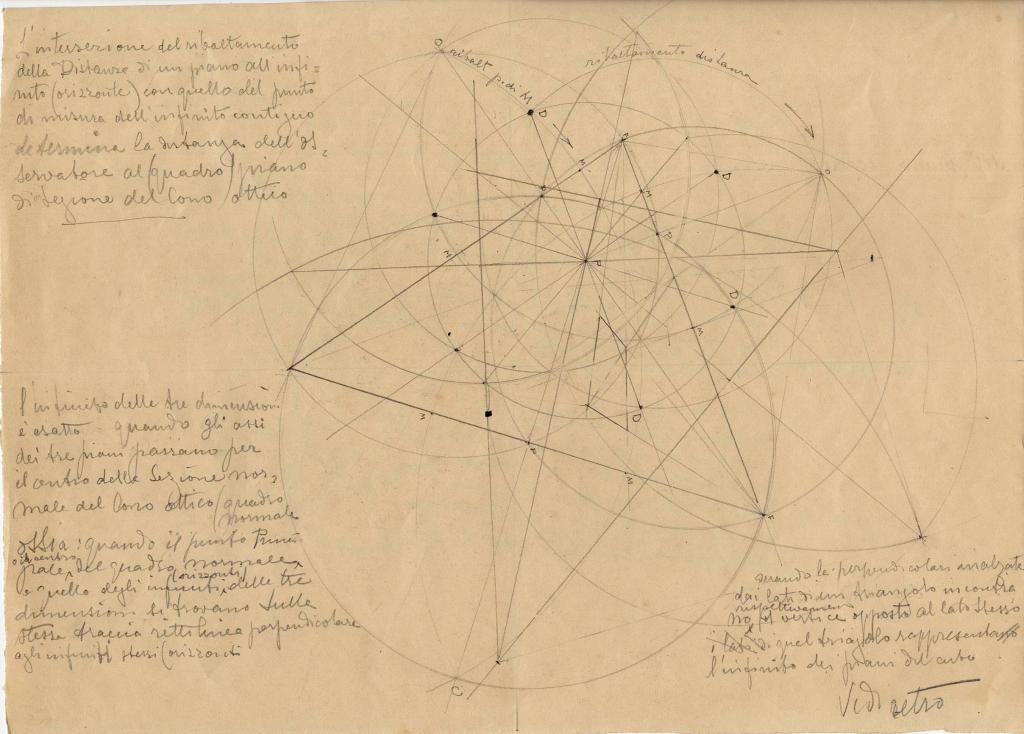 L'intersezione del ribaltamento
della Distanza di un piano all'infi=
nito (orizzonte) con quello del punto
di misura dell'infinito contiguo
determina la distanza dell'Os=
servatore al (quadro) piano
di Sezione del Cono ottico
O
ribalt p. di M
D
ribaltamento distanza
O
l'infinito delle tre dimensioni
è esatto quando gli assi
dei tre piani passano per
il centro della Sezione nor=
male del Cono ottico (quadro
normale
ossia: quando il punto Princi
pale, del quadro normale,
e quello degli infiniti, delle tre
(orizzonti)
dimensioni si trovano sulla
stessa traccia rettilinea perpendicolare
agli infiniti stessi (orizzonti
F
M
M
P
D
P
M
P
D
M
M
P
M
D
F
F
F
C
quando le perpendicolari innalzate
dai lati di un triangolo incontra
rispettivamen
no il vertice opposto al lato stesso
i lati di quel triangolo rappresentano
l'infinito dei piani del cubo
Vedi retro